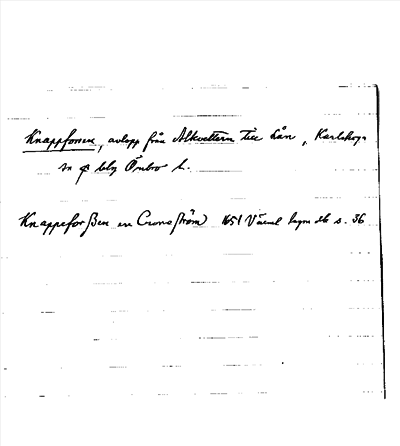 Knappforsen, avlopp från Alkvettern till Lån, Karlskoga
sn o bbg Örebro l.
Knappeforßen en Cronoström 1651 Värml lagm db s. 36